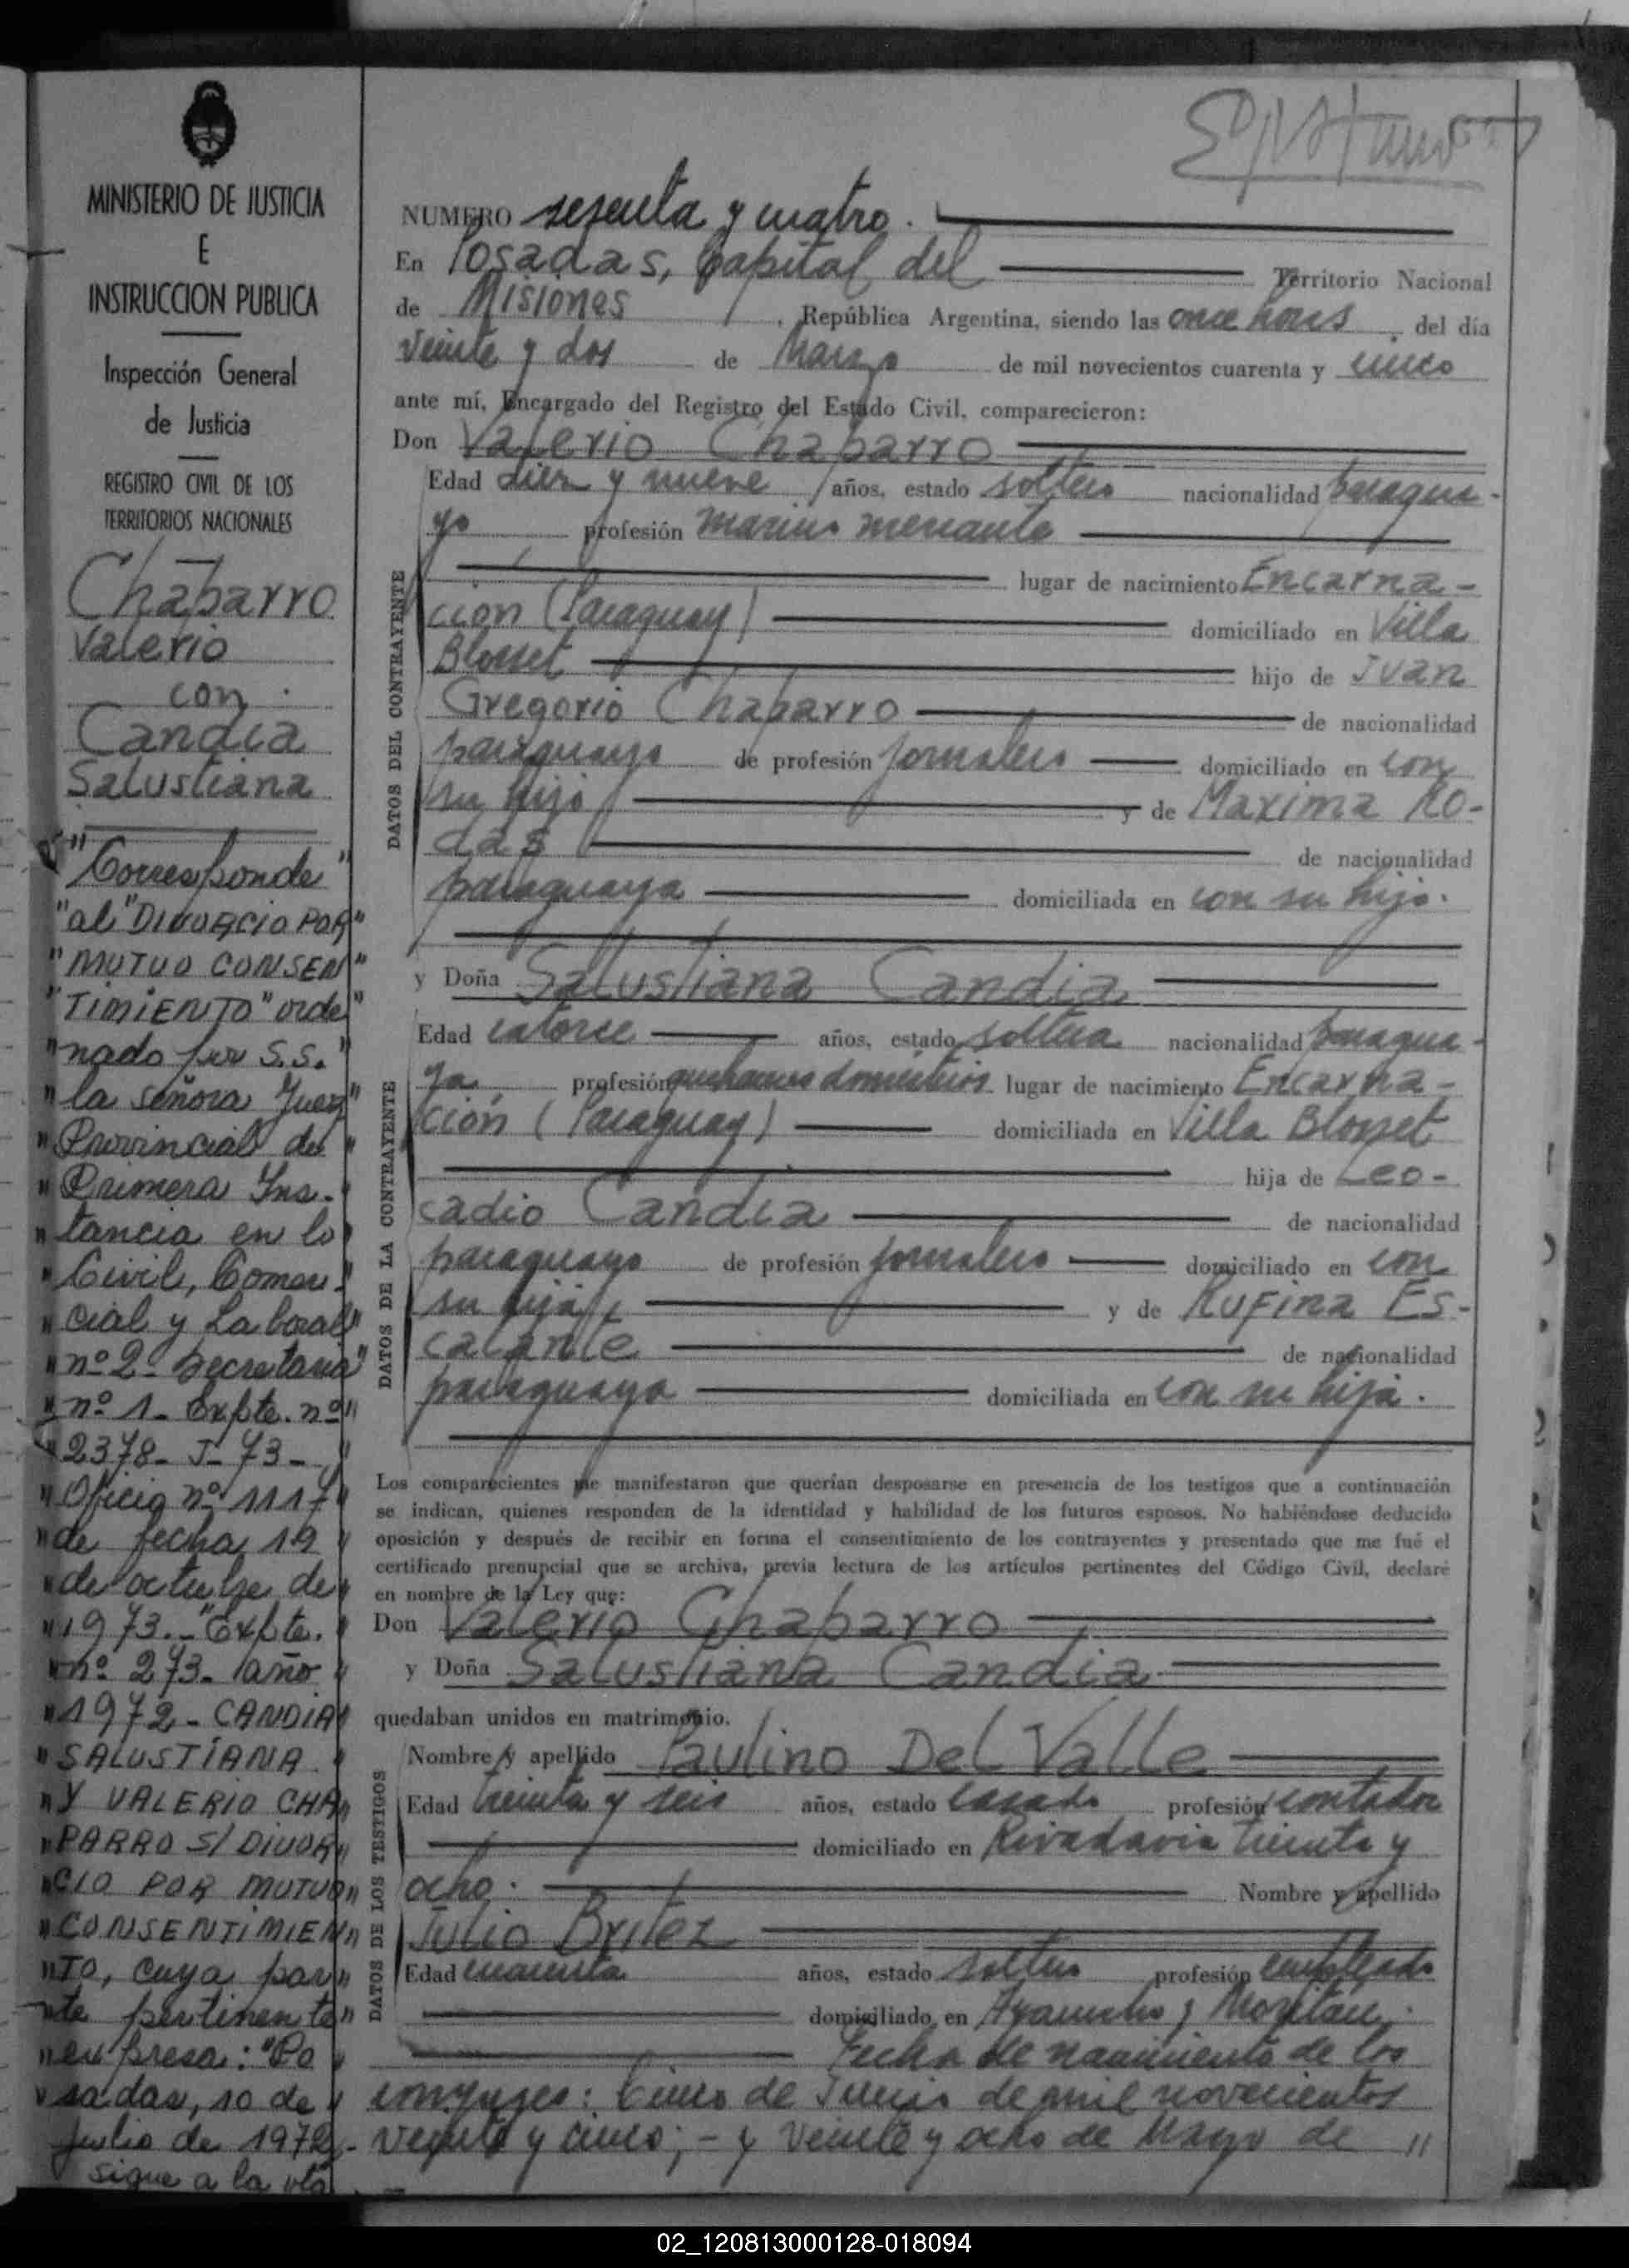 MINISTERIO DE JUSTICIA
E
INSTRUCCION PUBLICA
Inspección General
de Justicia
REGISTRO CIVIL DE LOS
TERRITORIOS NACIONALES
Chaparro
Valerio
con
Candia
Salustiana
"Corresponde"
"al "DIVORCIO POR"
"MUTUO CONSEN"
"TIMIENTO" orde"
"nado por S.S."
"la señora Juez"
"Provincial de"
"Primera Ins-"
"tancia en lo"
"Civil, Comer-"
"cial y Laboral"
"nº 2- Secretaria"
"nº 1- Expte. nº"
"2378- J- 73-"
"Oficio nº 1117"
"de fecha 19"
"de octubre de"
"1973.- "Expte."
"nº 273- año"
"1972- CANDIA"
"SALUSTIANA"
"Y VALERIO CHA"
"PARRO S/ DIVOR"
"CIO POR MUTUO"
"CONSENTIMIEN"
"TO, cuya par"
"te pertinente"
"expresa: "Po"
"sadas, 10 de"
julio de 1972,-
sigue a la vta
NUMERO sesenta y cuatro.
En Posadas, Capital del Territorio Nacional
de Misiones, República Argentina, siendo las once horas del día
veinte y dos de Marzo de mil novecientos cuarenta y cinco
ante mí, Encargado del Registro del Estado Civil, comparecieron:
Don Valerio Chaparro
Edad diez y nueve años, estado soltero nacionalidad paragua-
yo profesión marino mercante
lugar de nacimiento Encarna-
ción (Paraguay) domiciliado en Villa
Blosset hijo de Juan
Gregorio Chaparro de nacionalidad
paraguayo de profesión jornalero domiciliado en con
su hijo y de Maxima Ro-
das de nacionalidad
paraguaya domiciliada en con su hijo.
DATOS DEL CONTRAYENTE
y Doña Salustiana Candia
Edad catorce años, estado soltera nacionalidad paragua-
ya profesión quehaceres domésticos lugar de nacimiento Encarna-
ción (Paraguay) domiciliada en Villa Blosset
hija de Leo-
cadio Candia de nacionalidad
paraguayo de profesión jornalero domiciliado en con
su hija y de Rufina Es-
calante de nacionalidad
paraguaya domiciliada en con su hija.
DATOS DE LA CONTRAYENTE
Los comparecientes me manifestaron que querían desposarse en presencia de los testigos que a continuación
se indican, quienes responden de la identidad y habilidad de los futuros esposos. No habiéndose deducido
oposición y después de recibir en forma el consentimiento de los contrayentes y presentado que me fué el
certificado prenupcial que se archiva, previa lectura de los artículos pertinentes del Código Civil, declaré
en nombre de la Ley que:
Don Valerio Chaparro
y Doña Salustiana Candia
quedaban unidos en matrimonio.
Nombre y apellido Paulino Del Valle
Edad treinta y seis años, estado casado profesión contador
domiciliado en Rivadavia treinta y
ocho. Nombre y apellido
Julio Britez
Edad cuarenta años, estado soltero profesión empleado
domiciliado en Ayacucho y
Fecha de nacimiento de los
conyuges: Cinco de Junio de mil novecientos
veinte y cinco; - y veinte y ocho de Mayo de "
DATOS DE LOS TESTIGOS
02_120813000128-018094